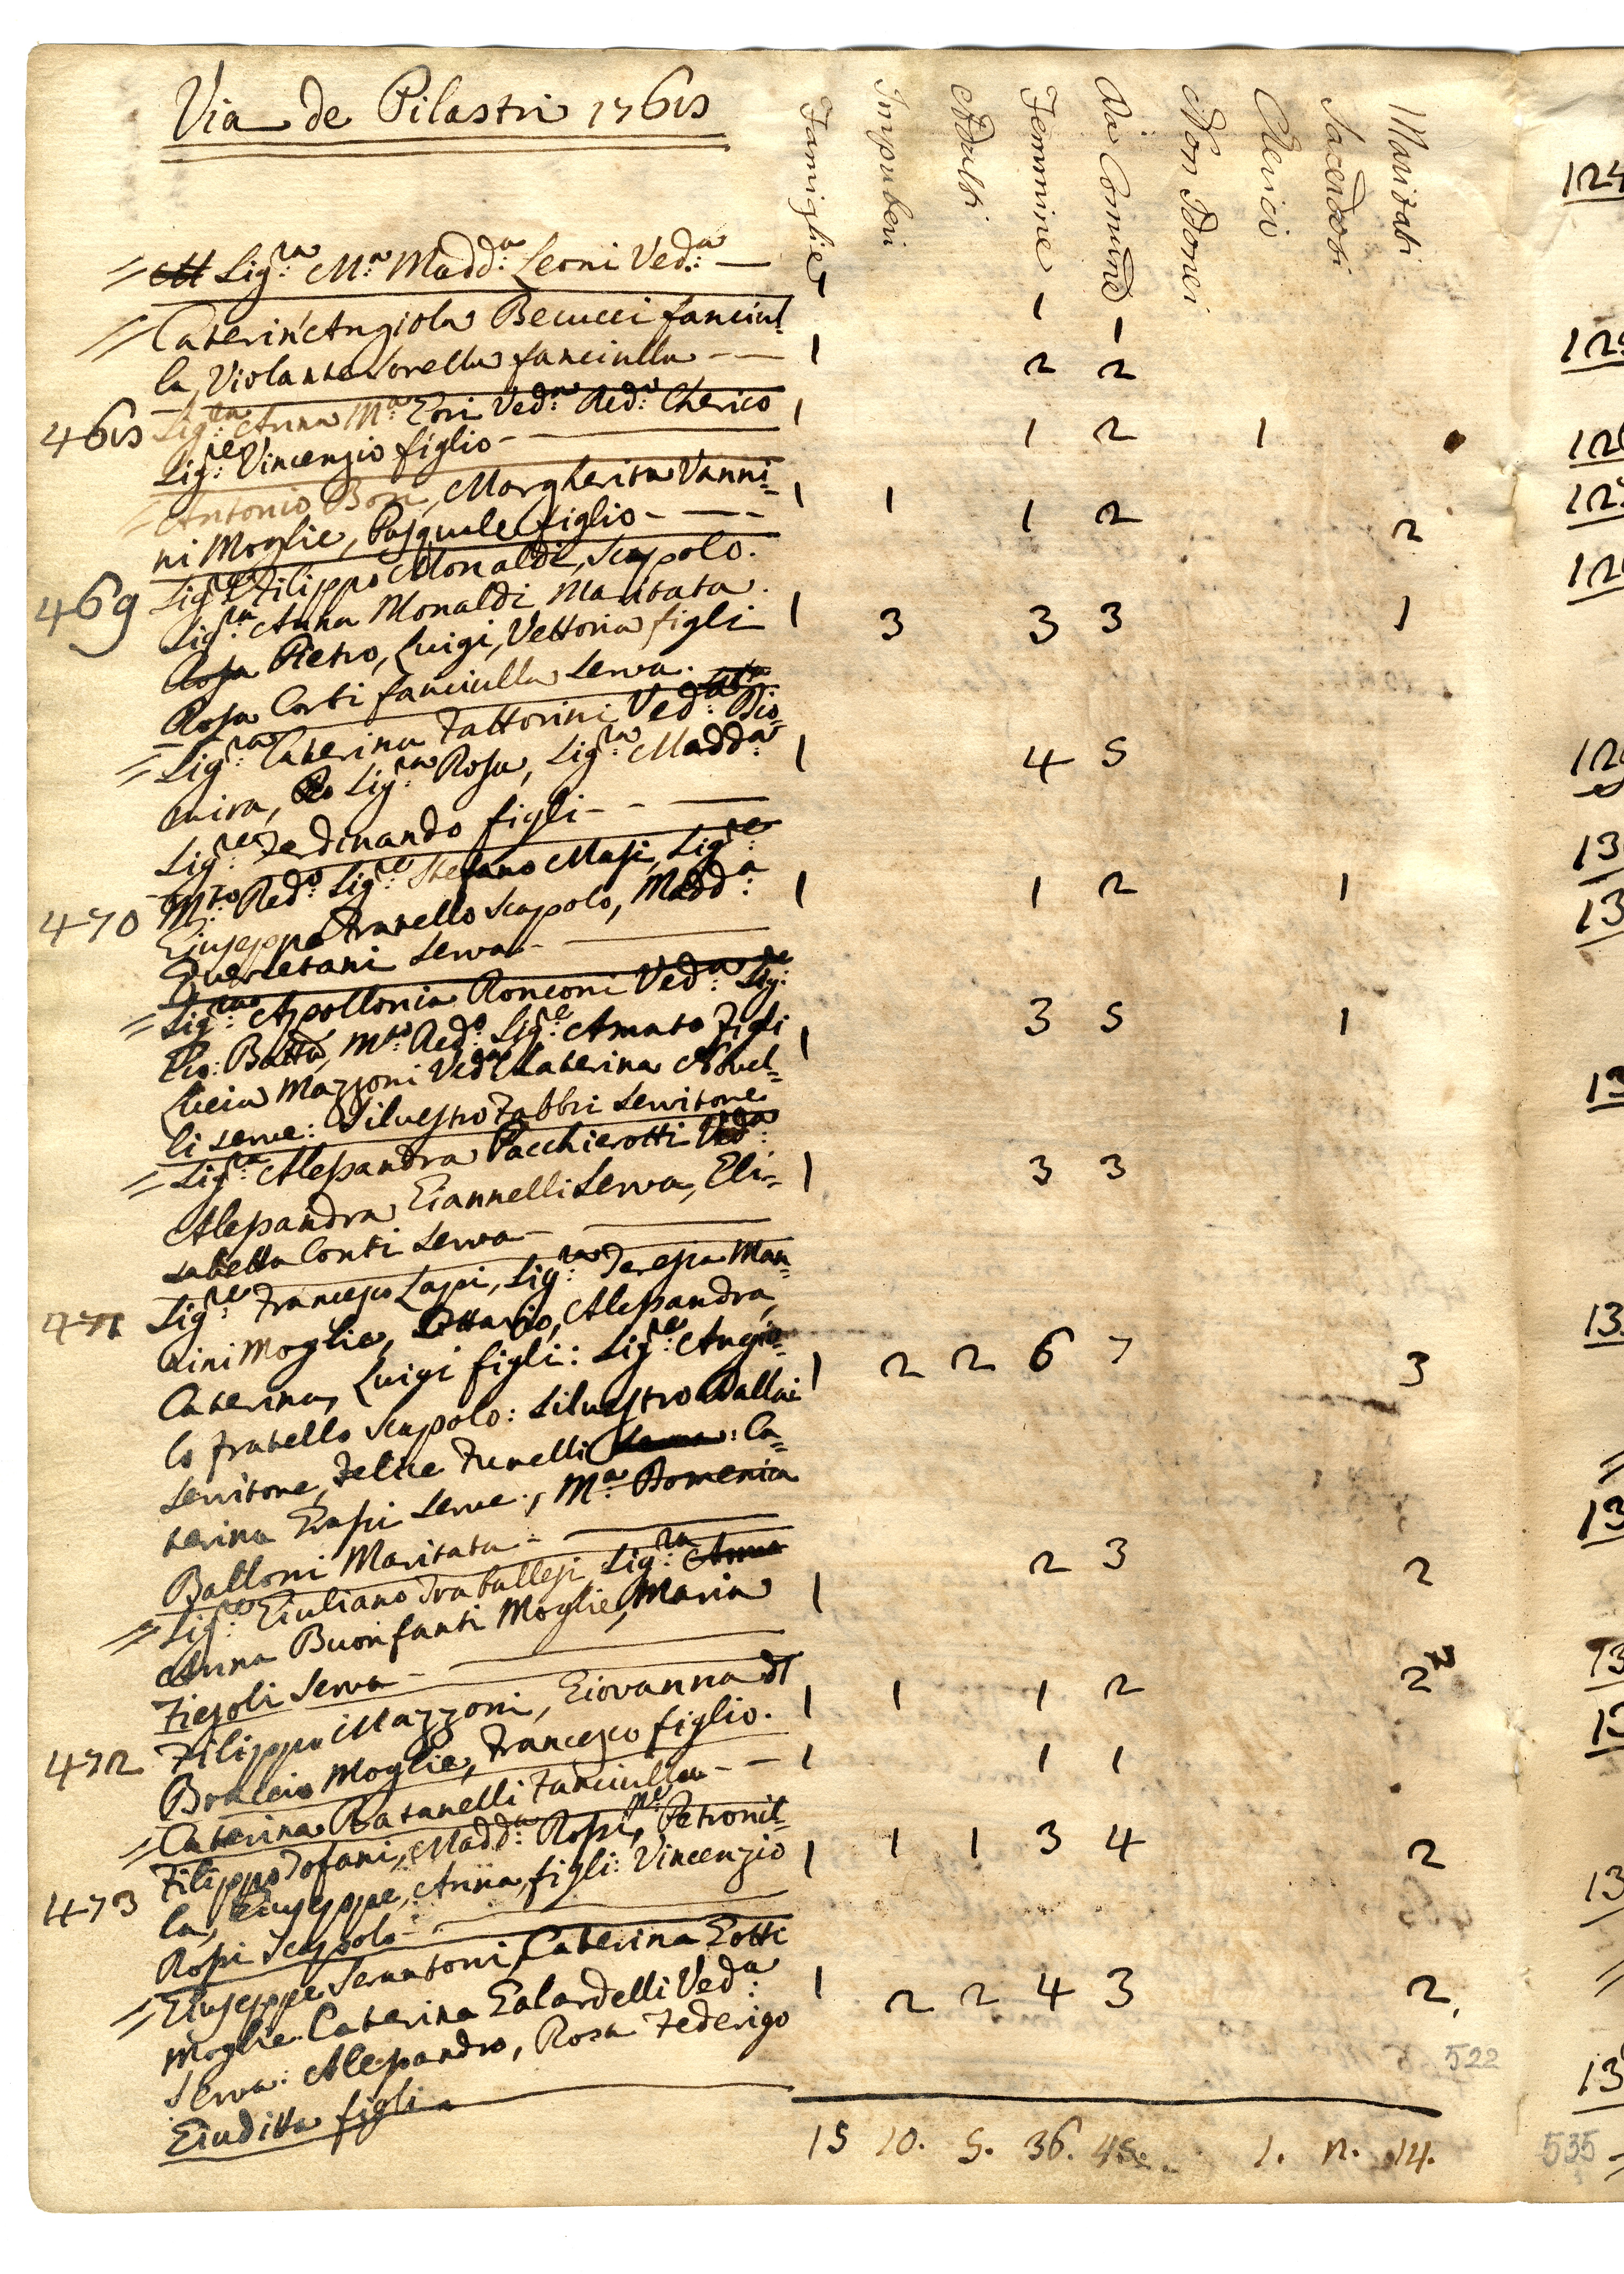 Via de Pilastri 1768
Famiglie Impuberi Adulti Femmine Da Comune Non Idonei Clerici Sacerdoti Maritati
Sig:ra M:a Madd:a Leoni Ved:a — 1 1
Caterin'Angiola Becucci fanciul=
la, Violante Sorella fanciulla — 1 2 2
468 Sig:ra Anna M:a Gori Ved:a Red: Cherico 1
Sig:re Vincenzio figlio — 1 2 1
Antonio Boni, Margherita Vanni= 1 1
ni Moglie, Pasquale figlio — 1 2 2
469 Sig:re Filippo Monaldi, Scapolo.
Sig:ra Anna Monaldi Maritata. 1 3 3 3 1
Rosa Pietro, Luigi, Vettoria figli
Rosa Corti fanciulla Serva.
Sig:ra Caterina Fattorini Ved:a Dio=
mira, Sig:ra Rosa, Sig:ra Madd:a 1 4 5
Sig:re Ferdinando figli —
470 M:to Red:o Sig:re Stefano Masi, Sig:re
Giuseppe Fratello Scapolo, Madd:a 1 1 2 1
Querletani Serva —
Sig:ra Apollonia Ronconi Ved:a Sig:re
Gio: Batta, M:to Red:o Sig:re Amato figli 1 3 5 1
Lucia Mazzoni Ved:a Caterina Novel=
li serve: Silvestro Fabbri Servitore
Sig:ra Alessandra Pacchierotti Ved:a
Alessandra Giannelli Serva, Eli= 1 3 3
sabetta Conti Serva —
471 Sig:re Francesco Lapi, Sig:ra Teresa Man=
nini Moglie, Ottavio, Alessandra,
Caterina, Luigi figli: Sig:re Angio= 1 2 2 6 7 3
lo fratello Scapolo: Silvestro Dallai
Servitore, Felice Funelli : Ca=
terina Grassi Serve:, M:a Domenica
Balloni Maritata —
Sig:re Giuliano Traballesi Sig:ra Anna
Anna Buonfanti Moglie, Maria 1 2 3 2
Fiesoli Serva —
472 Filippo Mazzoni, Giovanna di 1 1 1 2 2
Braccio Moglie, Francesco figlio.
Caterina Batanelli Fanciulla — 1 1 1
473 Filippo Tofani, Madd:a Rossi, Me: Petronil=
la, Giuseppe, Anna, figli: Vincenzio 1 1 1 3 4 2
Rossi Scapolo —
Giuseppe Serantoni, Caterina Gotti
Moglie Caterina Galardelli Ved:a 1 2 2 4 3 2
Serva: Alessandro, Rosa Federigo
Giuditta figli
522
15 10. 5. 36. 45. 1. 2. 14.
535